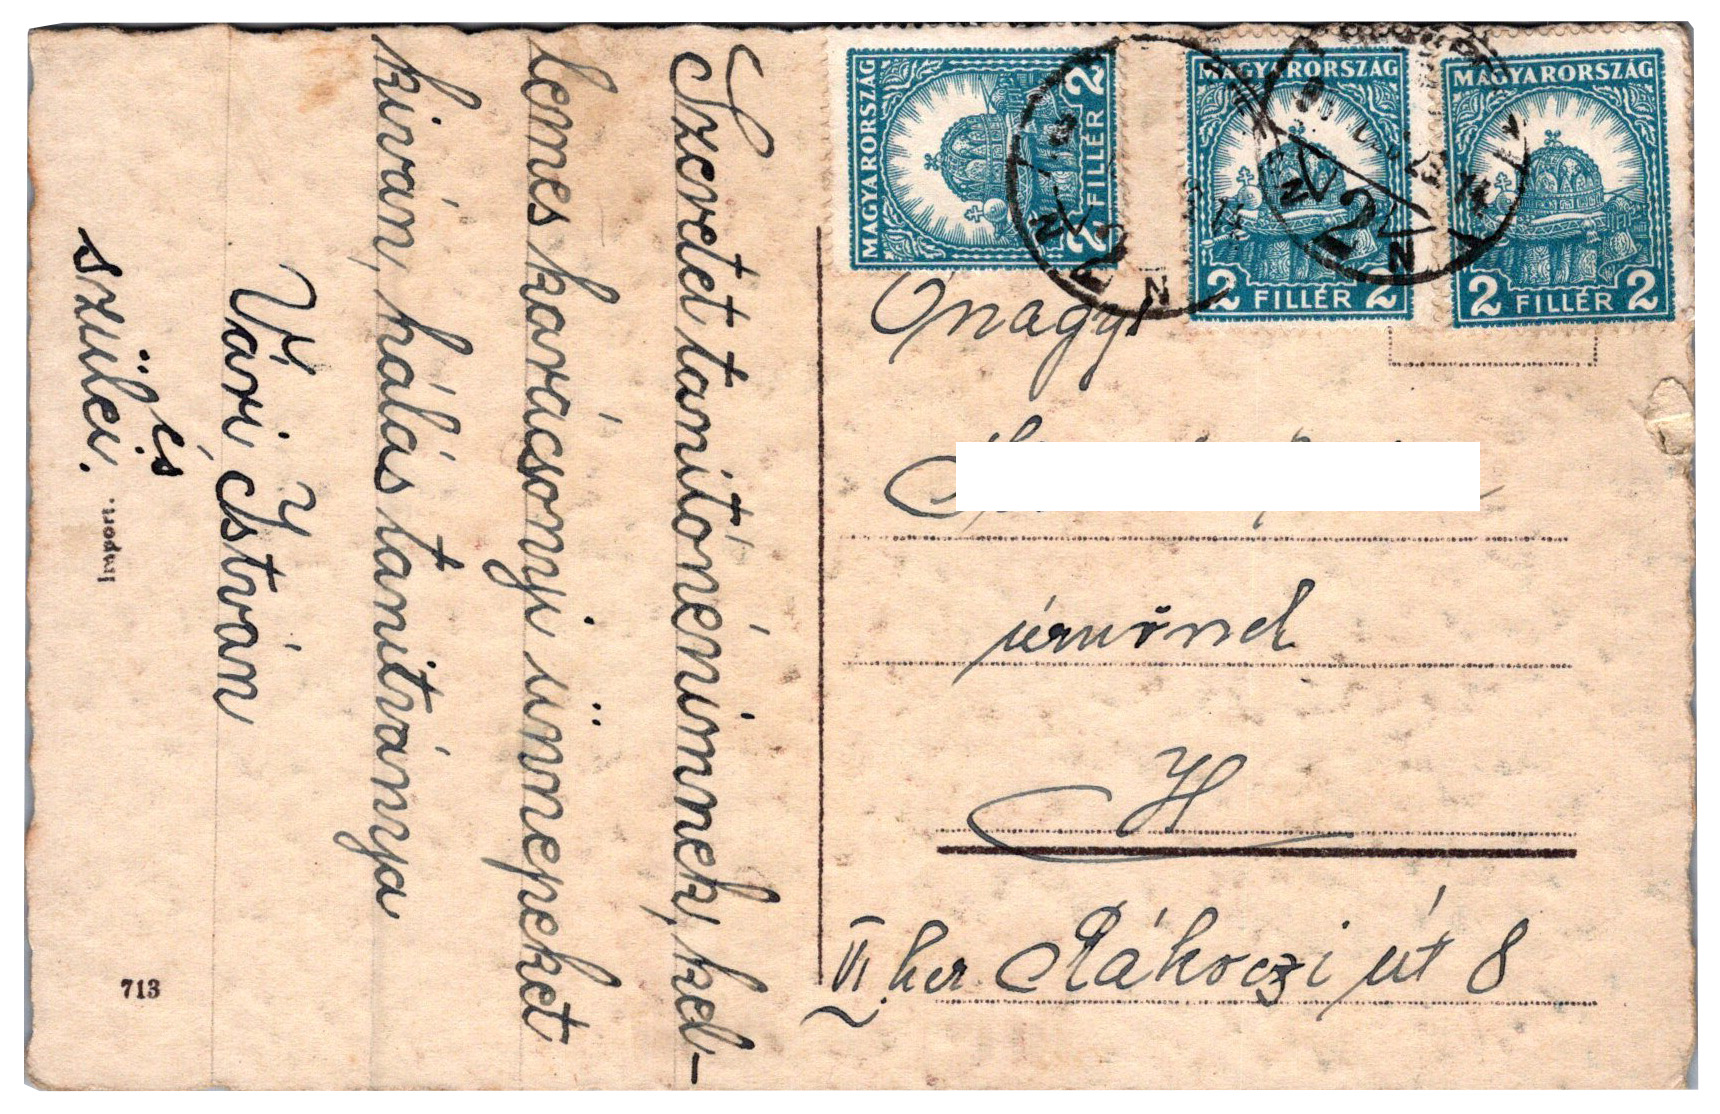 Szeretet tanítónéninnek, kel-
lemes karácsonyi ünnepeket
kiván, hálás tanitványa
Vári István
és
szülei.
Import.
713
MAGYARORSZÁG
2 FILLÉR 2
MAGYARORSZÁG
2 FILLÉR 2
MAGYARORSZÁG
2 FILLÉR 2
Őnagys
úrnőnek
H
VI. ker Rákoczi út 8